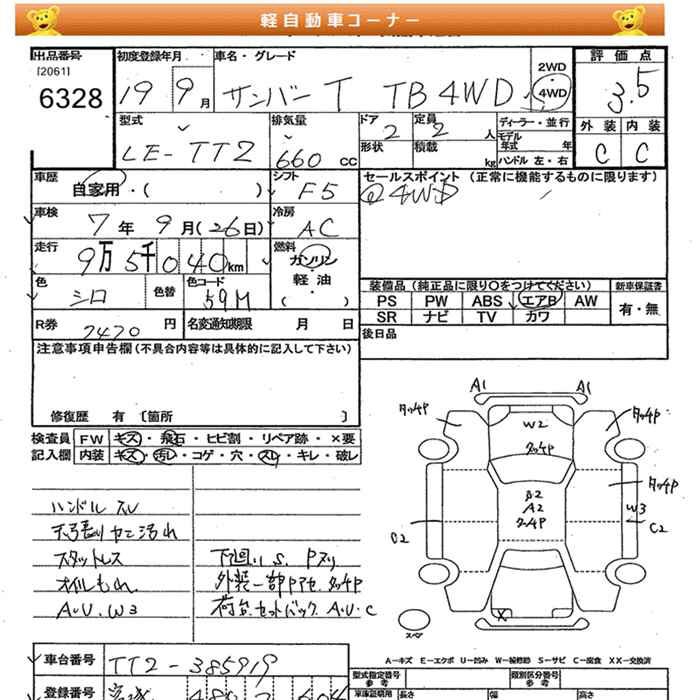 軽自動車コーナー
出品番号
[2061]
6328
初度登録年月
19 9月
車名・グレード
サンバー T TB 4WD
2WD
4WD
評価点
3.5
外装 内装
C C
型式
LE-TT2
排気量
660 CC
ドア
2
形状
定員
2 人
積載
kg
ディーラー・並行
モデル年式 年
ハンドル 左・右
車歴
自家用・( )
シフト
F5
セールスポイント (正常に機能するものに限ります)
@4WD
車検
7年 9月(26日)
冷房
AC
走行
9万 5千 040km
燃料
ガソリン
軽・油
( )
色
シロ
色替
色コード
59M
装備品 (純正品に限り○をつけてください)
新車保証書
PS PW ABS エアB AW
有・無
SR ナビ TV カワ
R券 7470 円
名変通知期限 月 日
後日品
注意事項申告欄 (不具合内容等は具体的に記入して下さい)
修復歴 有 [箇所 ]
検査員 FW キズ・飛石・ヒビ割・リペア跡・×要
記入欄 内装 キズ・汚レ・コゲ・穴・スレ・キレ・破レ
ハンドルスレ
天張りヤニ汚れ
スタットレス
オイルもれ
A・U・W3
下廻りS. Pヌリ
外装一部Pアセ タッチP
荷台セットバック A・U・C
A1 A1
タッチP タッチP
W2
タッチP
タッチP
B2
A2
タッチP
W3
C2
C2
X
スペア
A-キズ E-エクボ U-凹み W-補修跡 S-サビ C-腐食 XX-交換済
車台番号 TT2-385919
型式指定番号
参考
類別区分番号
参考
登録番号 宮城 480
車庫証明用
参考
長さ 幅 高さ